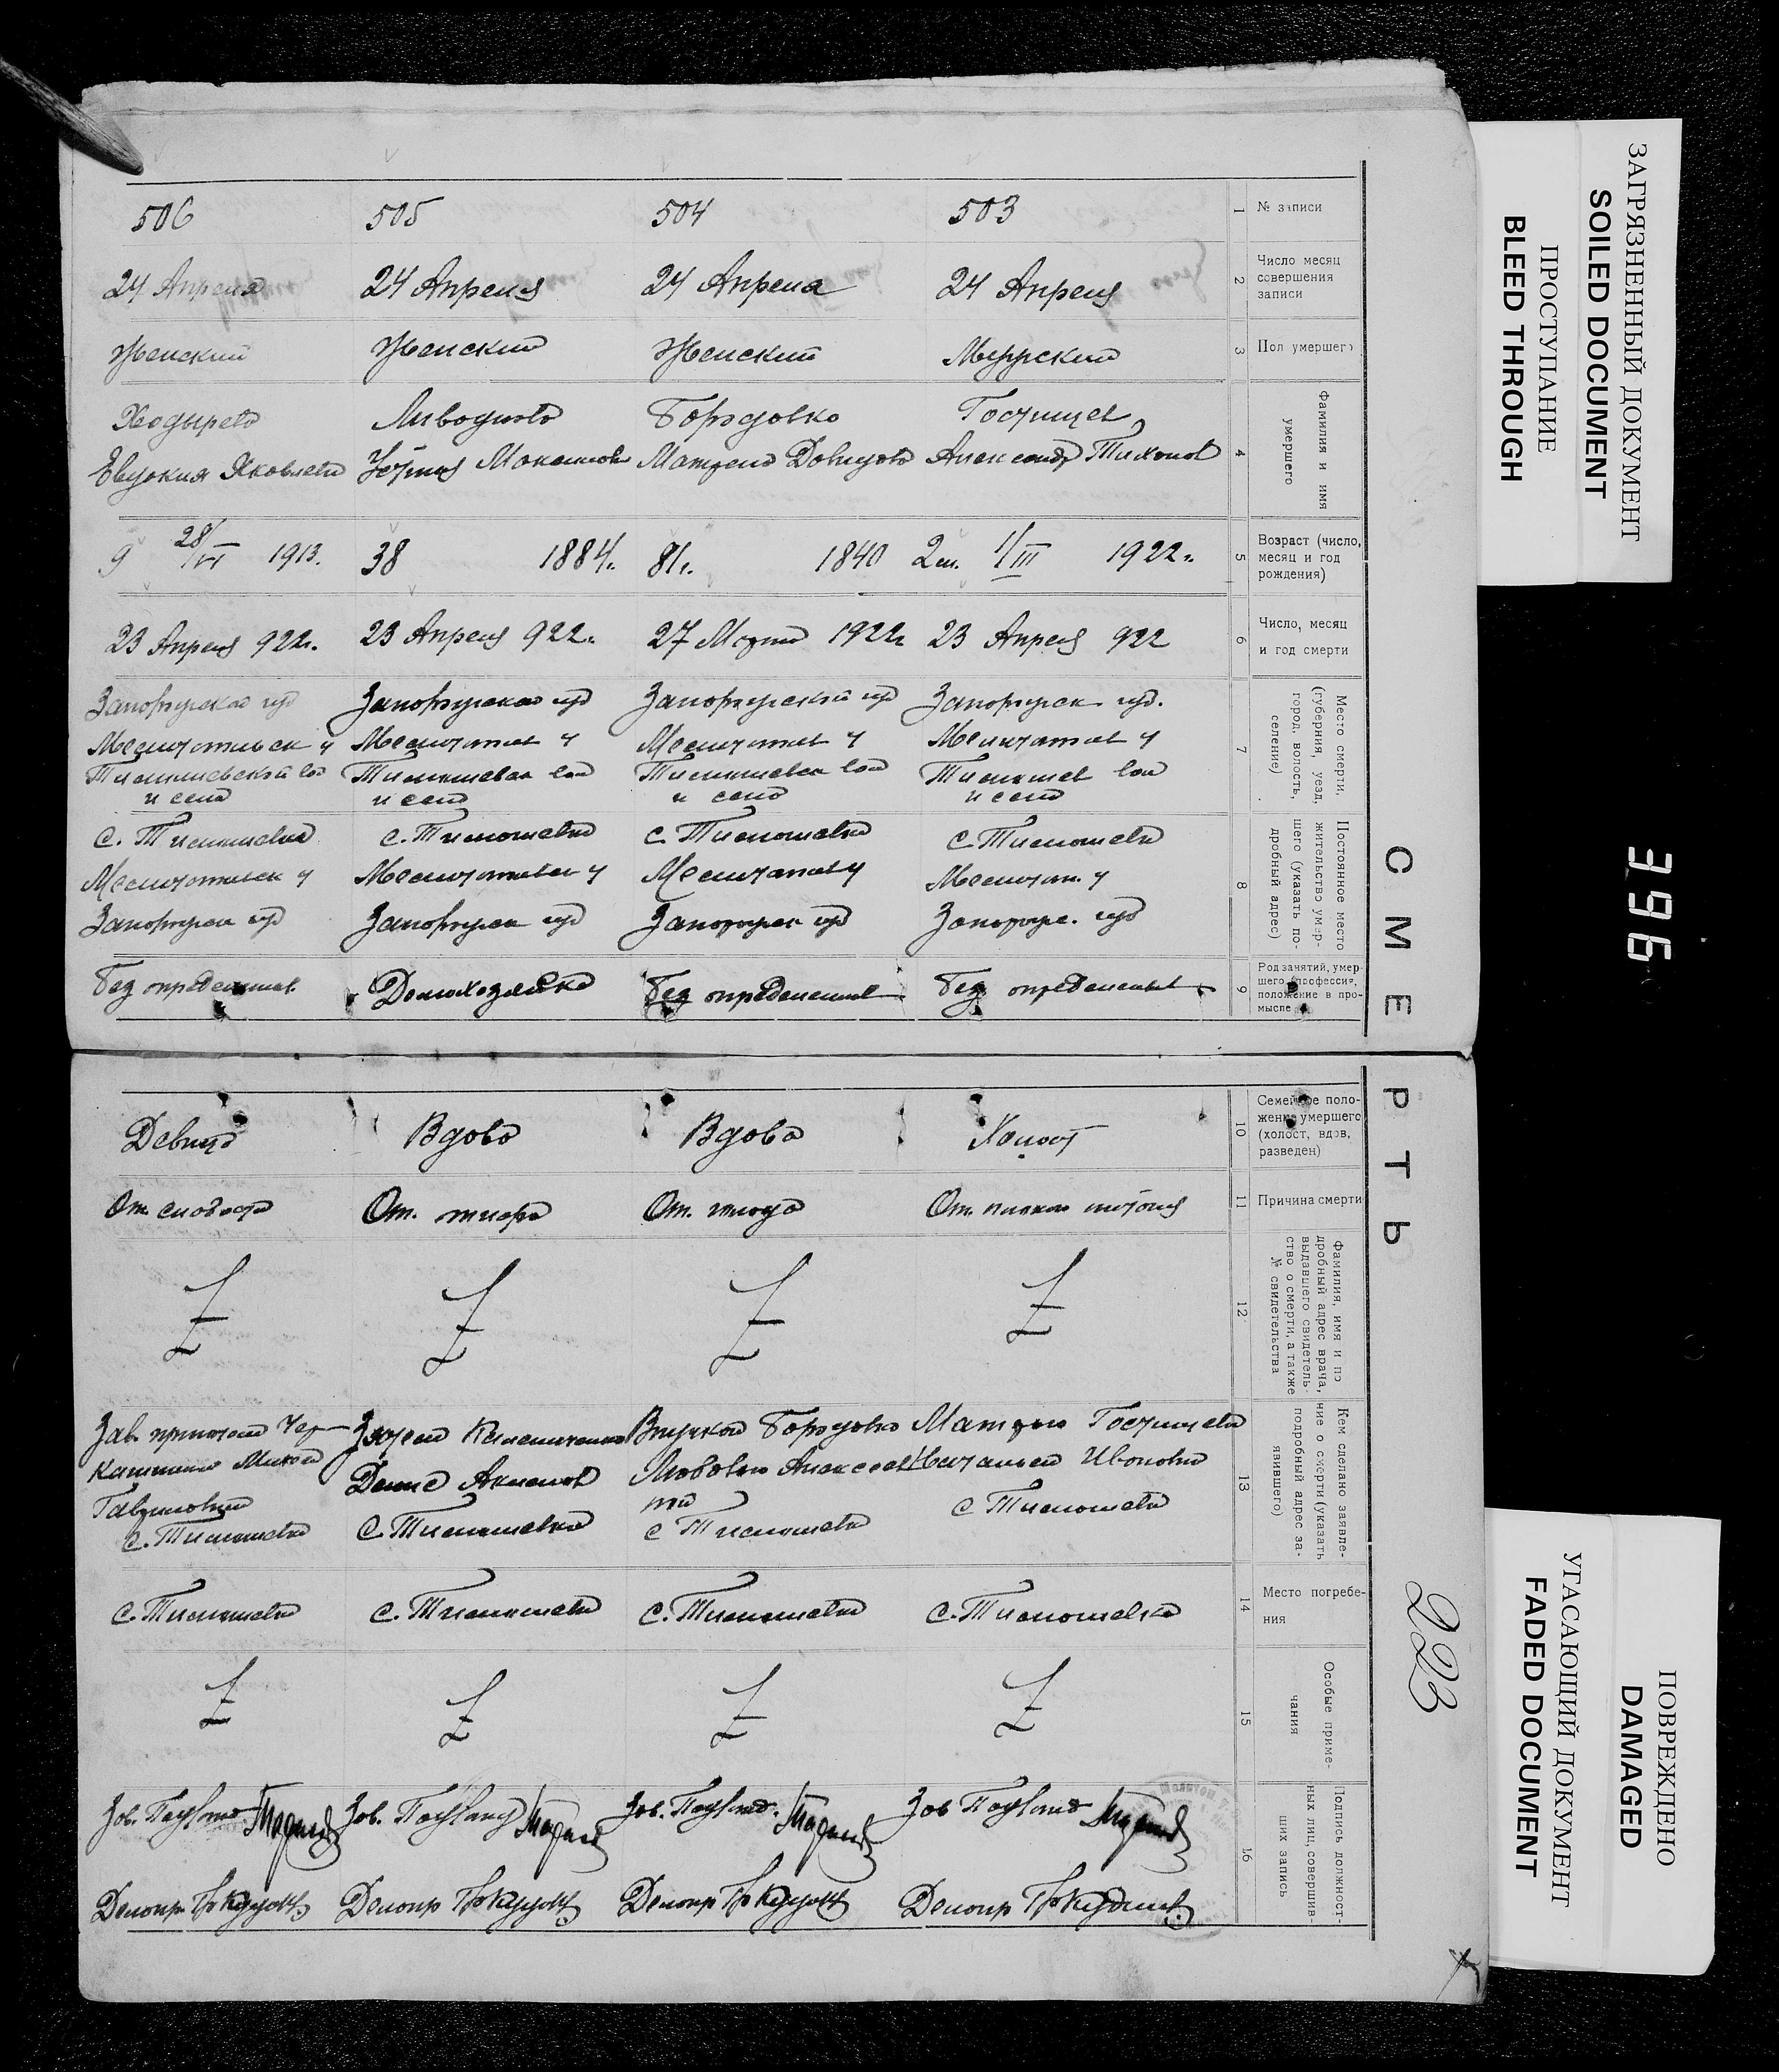 ЗАГРЯЗНЕННЫЙ ДОКУМЕНТ
SOILED DOCUMENT
ПРОСТУПАНИЕ
BLEED THROUGH
396
УГАСАЮЩИЙ ДОКУМЕНТ
FADED DOCUMENT
ПОВРЕЖДЕНО
DAMAGED
СМЕРТЬ
223
1 № записи
503
504
505
506
2 Число месяц
совершения
записи
24 Апреля
24 Апреля
24 Апреля
24 Апреля
3 Пол умершего
Мужской
Женский
Женский
Женский
4 Фамилия и имя
умершего
Александр Тихонов
Бородавко
Матрена Давидова
Ходырева
Евдокия Яковлева
5 Возраст (число,
месяц и год
рождения)
2 м. 1/III 1922 г.
81 г. 1840
38 1884 г.
9 28/VI 1913.
6 Число, месяц
и год смерти
23 Апреля 922
27 Марта 1922 г
23 Апреля 922 г.
23 Апреля 922 г.
7 Место смерти,
(губерния, уезд,
город, волость,
селение)
Запорожск. губ.
Мелитопол у
Тимошев вол
и село
Запорожской губ
Мелитопол у
Тимошевск вол
и село
Запорожской губ
Мелитопол у
Тимошевск вол
и село
Запорожской губ
Мелитопольск у
Тимошевской вол
и село
8 Постоянное место
жительство умер-
шего (указать по-
дробный адрес)
с. Тимошевка
Мелитоп. у
Запорож. губ
с. Тимошевка
Мелитопол у
Запорожск губ
с. Тимошевка
Мелитопольск у
Запорожск губ
с. Тимошевка
Мелитопольск у
Запорожск губ
9 Род занятий, умер-
шего (профессия,
положение в про-
мысле
Без определенных
Без определенных
Домохозяйка
Без определенных
10 Семейное поло-
жение умершего
(холост, вдов,
разведен)
Холост
Вдова
Вдова
Девица
11 Причина смерти
От голода
От тифа
От слабости
12 Фамилия, имя и по
дробный адрес врача,
выдавшего свидетель-
ство о смерти, а также
№ свидетельства
13 Кем сделано заявле-
ние о смерти (указать
подробный адрес за-
явившего)
Натальей Ивановна
с Тимошевка
Внучкой Бородавко
Любовью Алексеев
ной
с Тимошевка
с. Тимошевка
Зав. приютом
с. Тимошевка
14 Место погребе-
ния
с. Тимошевка
с. Тимошевка
с. Тимошевка
с. Тимошевка
15 Особые приме-
чания
16 Подпись должност-
ных лиц, совершив-
ших запись
Зав.
Делопр
Зав.
Делопр
Зав.
Делопр
Зав.
Делопр